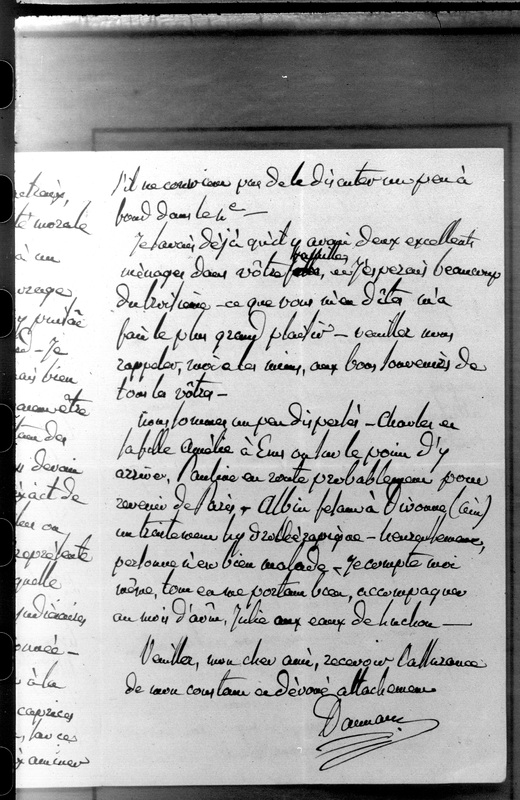 s'il ne convient pas de le discuter un peu à
fond dans le nº —
Je savais déjà qu'il y avait deux excellents
ménages dans vôtre famille, et j'espérais beaucoup
du troisième — ce que vous m'en dîtes m'a
fait le plus grand plaisir — veuillez nous
rappeler, moi et les miens, aux bons souvenirs de
tous les vôtres —
Nous sommes un peu dispersés — Charles et
sa fille Amélie à Ems ou sur le point d'y
arriver, Pauline en route probablement pour
revenir de Paris, Albin faisant à Divonne (ain)
un traitement hydrothérapique — heureusement,
personne n'est bien malade — Je compte moi
même, tout en me portant bien, accompagner
au mois d'août, Julie aux eaux de Luchon —
Veuillez, mon cher ami, recevoir l'assurance
de mon constant et dévoué attachement
morale
à un
Je
bien
de
on
représente
à la
caprices
examiner